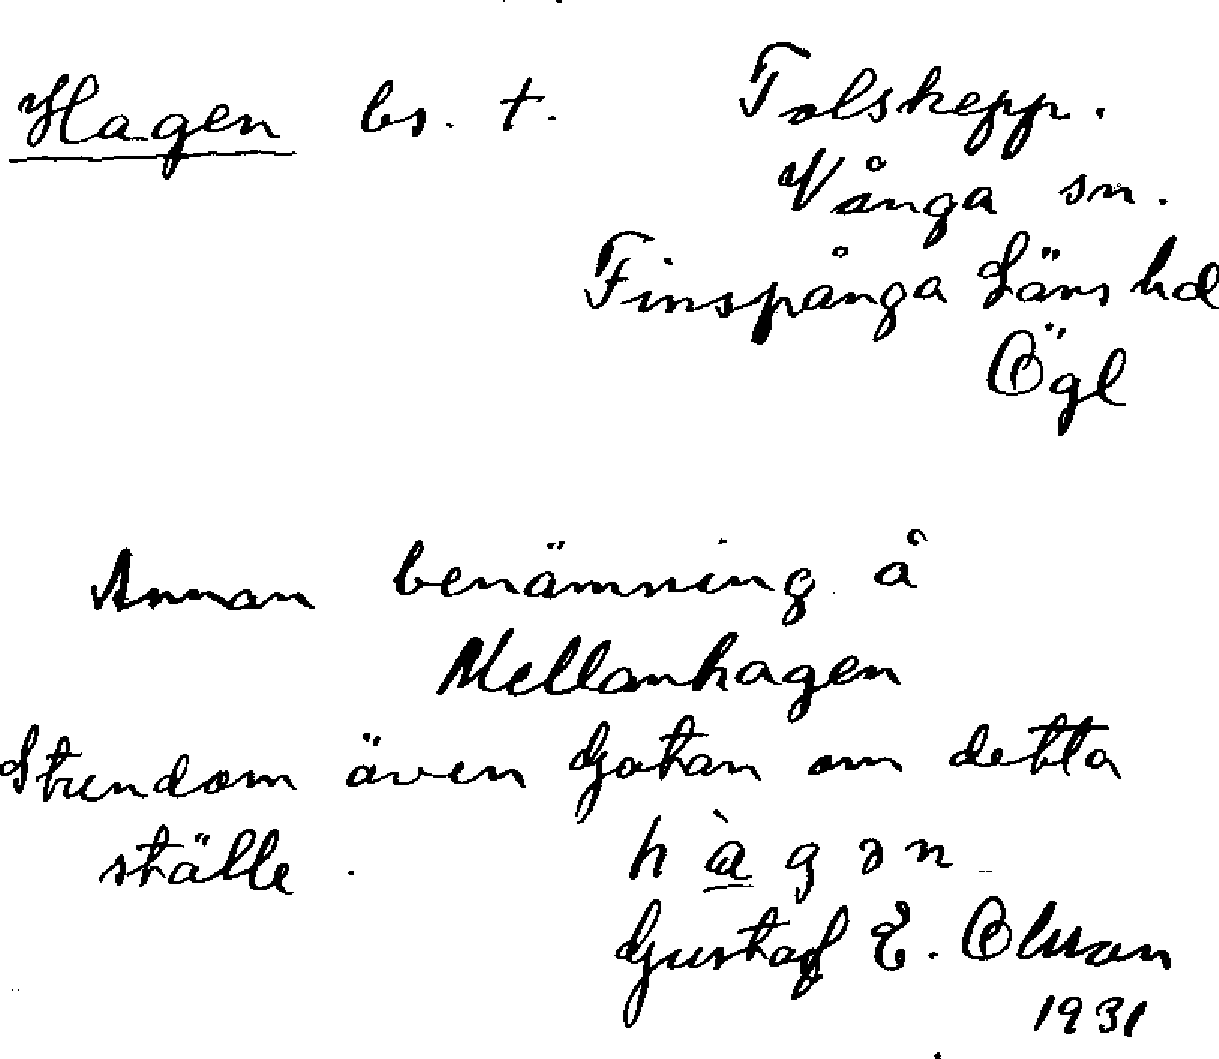 Hagen bs. t. Tolskepp.
Vånga sn.
Finspånga Läns hd
Ögl
Annan benämning å
Mellanhagen
Stundom även Gatan om detta
ställe. hàgən
Gustaf E. Olsson
1931